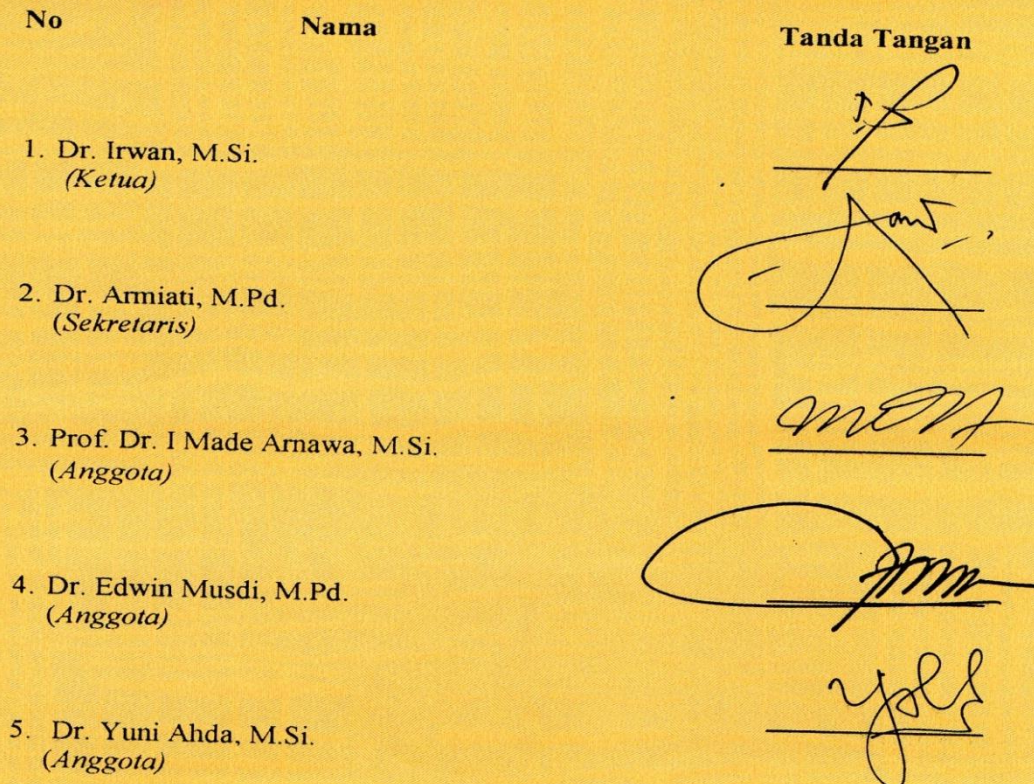 No Nama Tanda Tangan
1. Dr. Irwan, M.Si.
(Ketua)
2. Dr. Armiati, M.Pd.
(Sekretaris)
3. Prof. Dr. I Made Arnawa, M.Si.
(Anggota)
4. Dr. Edwin Musdi, M.Pd.
(Anggota)
5. Dr. Yuni Ahda, M.Si.
(Anggota)